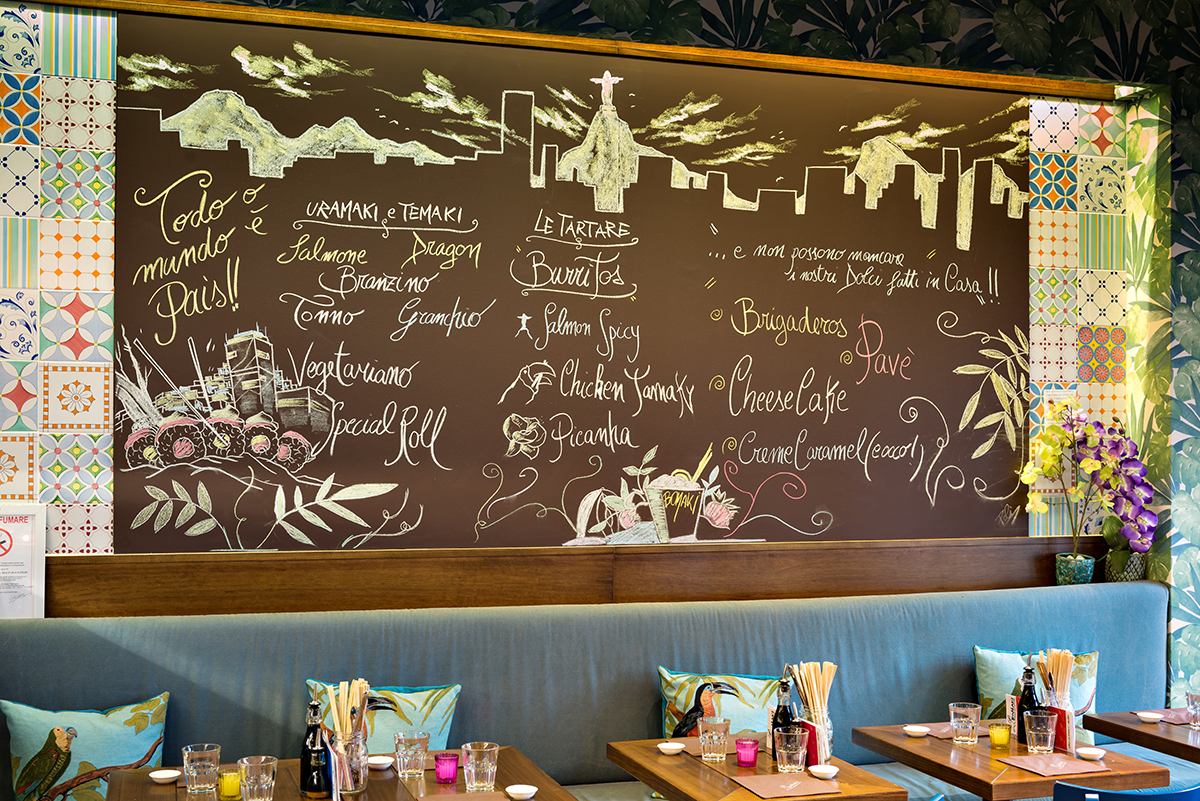 Todo o
mundo é
Pais!!
URAMAKI e TEMAKI
Salmone Dragon
Branzino
Tonno Granchio
Vegetariano
Special Roll
LE TARTARE
BurriTos
Salmon Spicy
Chicken Tannaky
Picanha
BOMAKI
... e non possono mancare
i nostri Dolci fatti in Casa!!
Brigaderos
Pavè
CheeseCake
Creme Caramel (cocco!)
FUMARE